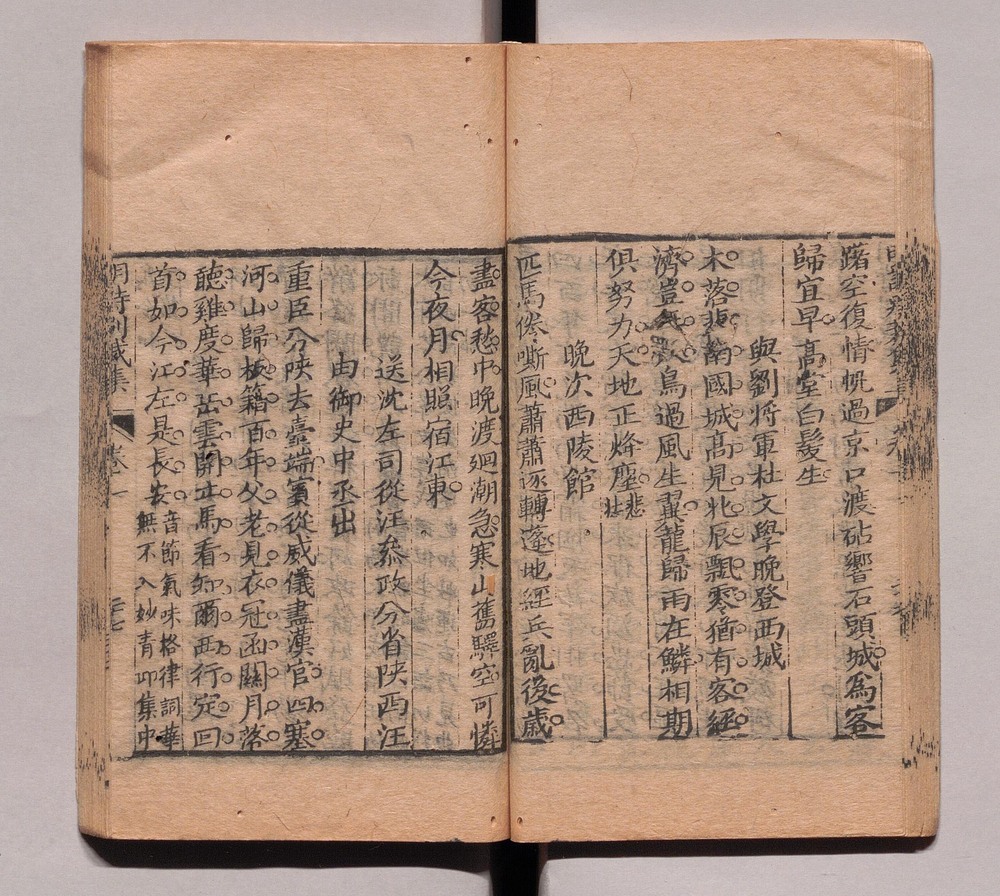 躇空復情帆過京口渡砧響石頭城爲客
歸宜早高堂白髮生
與劉將軍杜文學晚登西城
木落悲南國城高見北辰飄零猶有客經
濟豈無人鳥過風生翼龍歸雨在鱗相期
俱努力天地正烽塵悲壯
晚次西陵館
匹馬倦嘶風蕭蕭逐轉蓬地經兵亂後歲
盡客愁中晚渡廻潮急寒山舊驛空可憐
今夜月相照宿江東
送沈左司從汪叅政分省陝西汪
由御史中丞出
重臣分陝去臺端賓從威儀盡漢官四塞
河山歸板籍百年父老見衣冠函關月落
聽雞度華岳雲開立馬看知爾西行定回
首如今江左是長安音節氣味格律詞華
無不入妙青邱集中
明詩別裁集
卷一